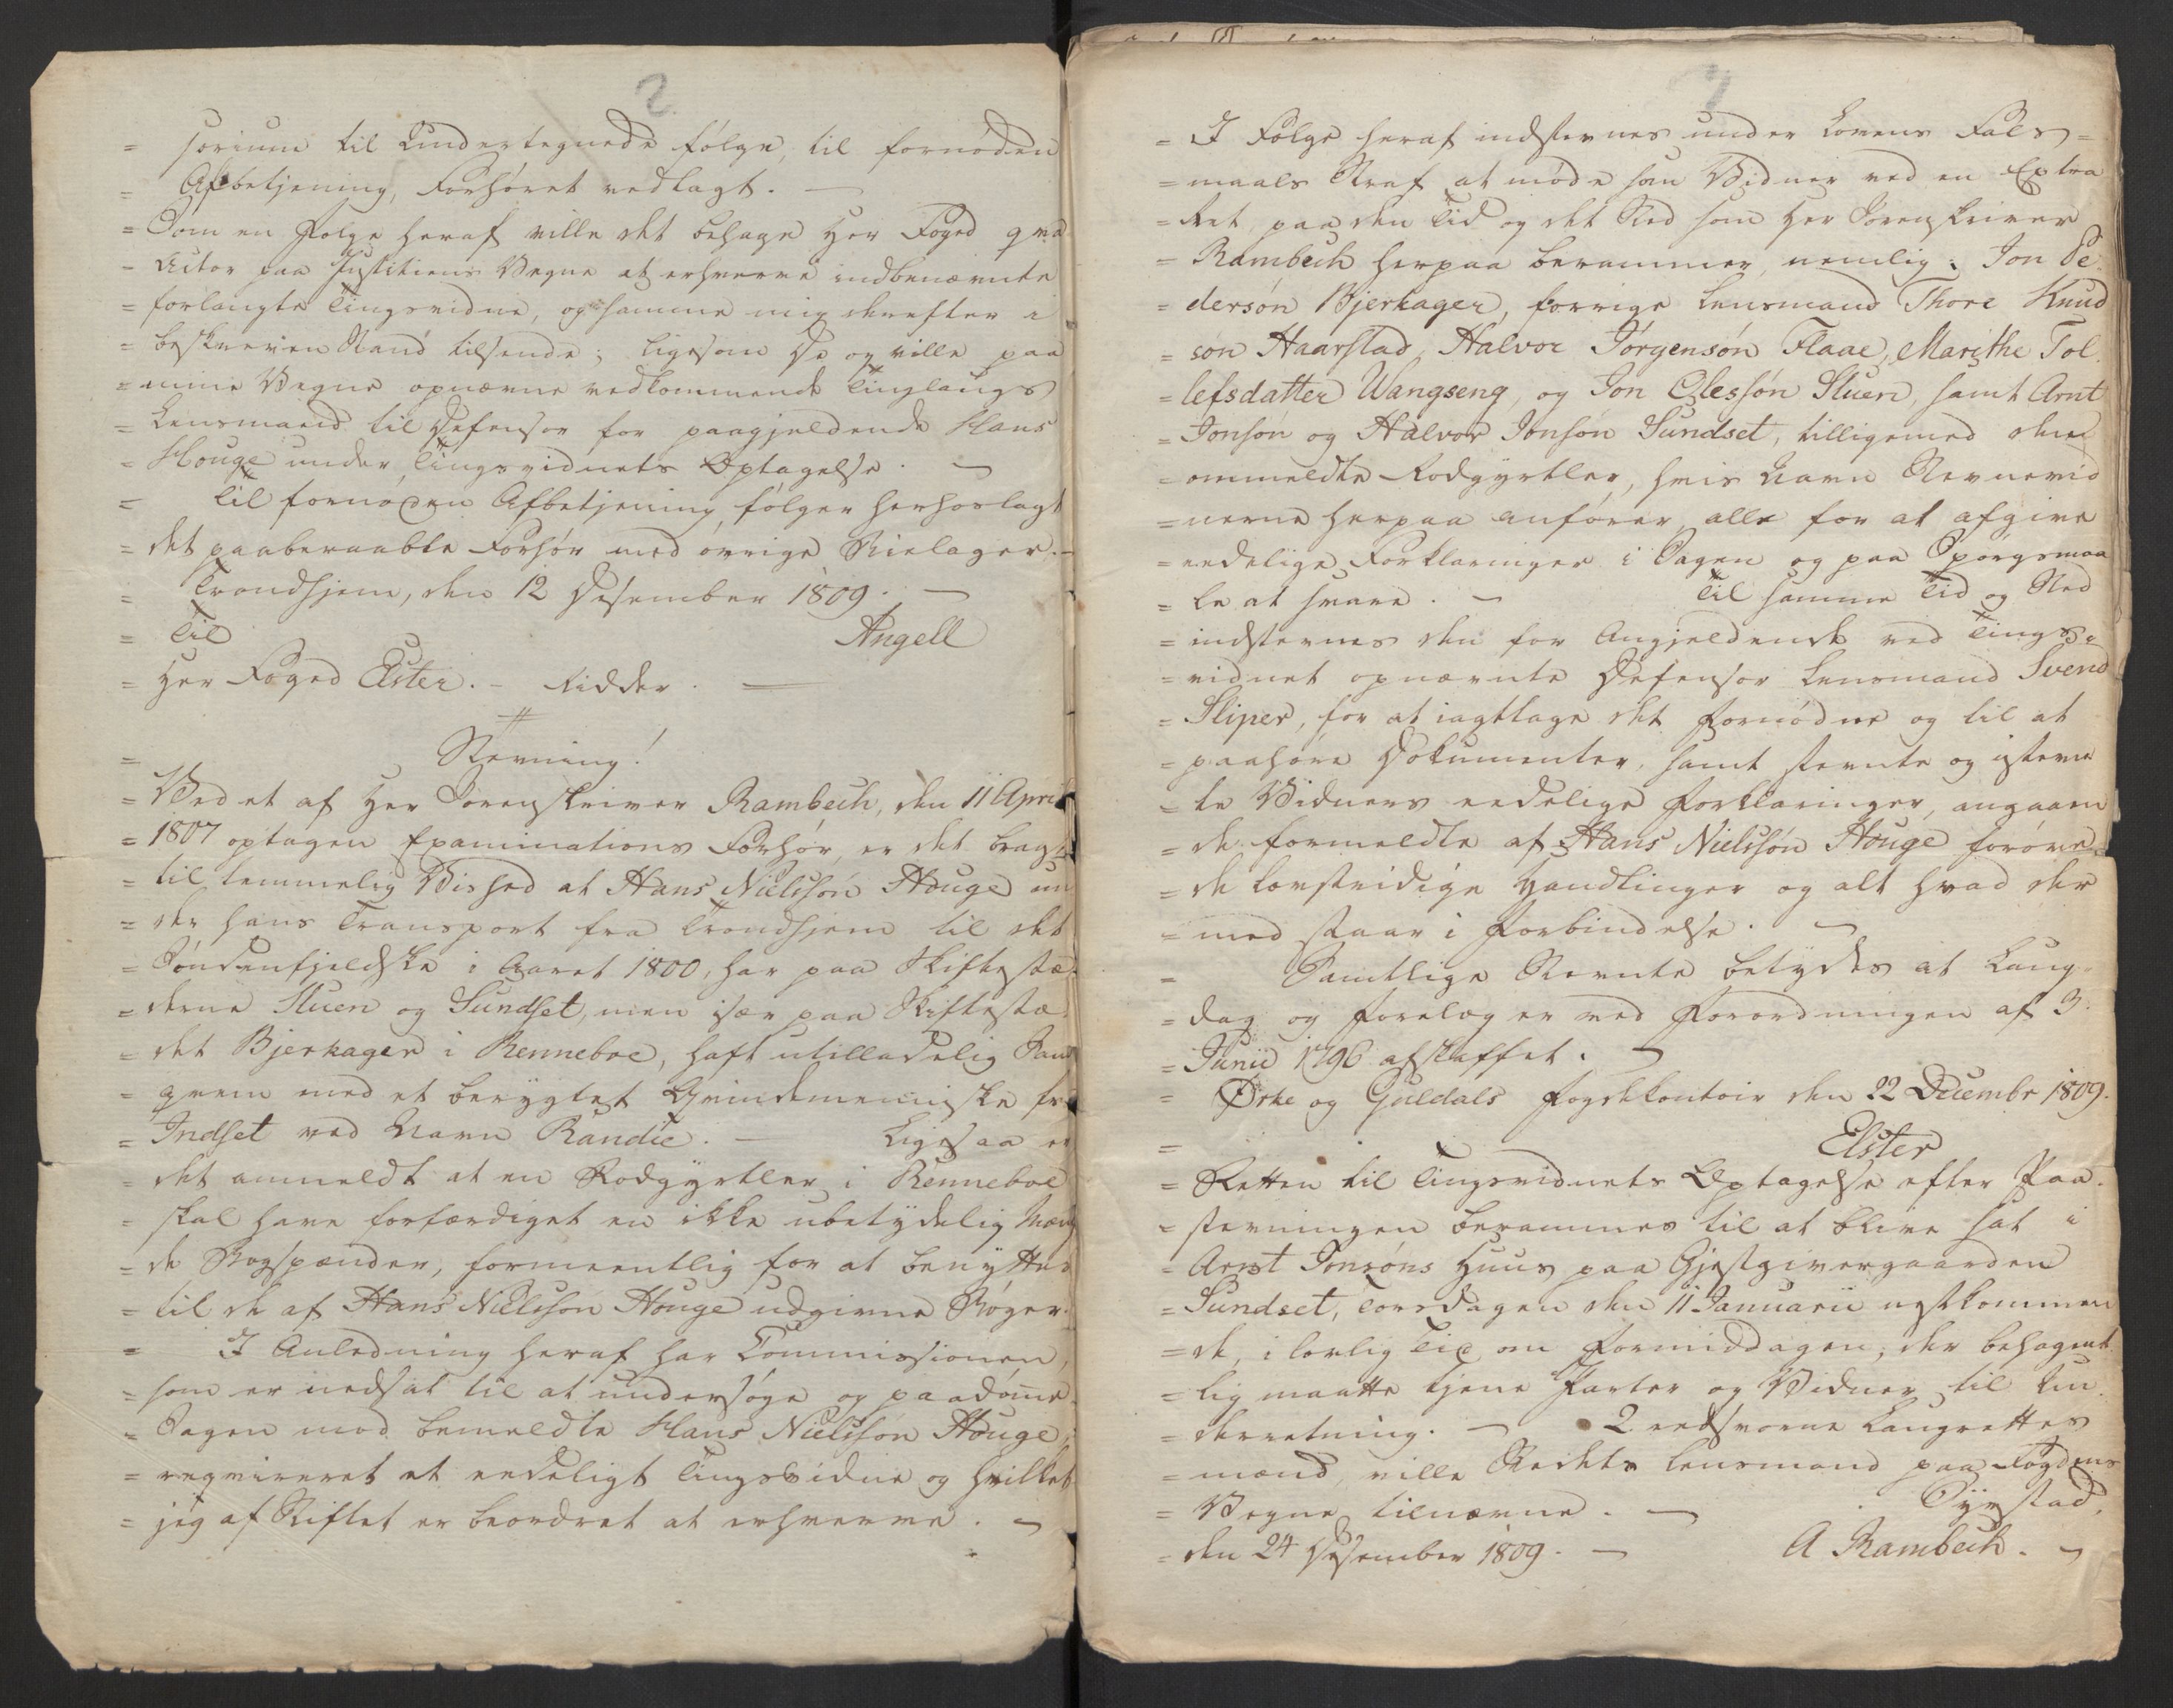 2
= sorium til Undertegnede følge, til fornøden
= Afbetjening, Forhøret vedlagt. —
= Som en Følge heraf ville det behage Her Foged qva
= Actor paa Justitiens Vegne at erhverve indbenævnte
= forlangte Tingsvidne, og samme mig derefter i
= beskreven Stand tilsende; ligesom De og ville paa
= mine Vegne opnævne vedkommende Tinglaugs
= Lensmand til Defensor for paagjeldende Hans
= Houge under Tingsvidnets Optagelse. —
= Til fornøden Afbetjening følger herhoslagt
= det paaberaabte Forhør med øvrige Bielager. —
= Trondhjem, den 12 Desember 1809. —
= Til Angell
= Her Foged Elster. — Ridder. —
= Stevning!
= Ved et af Her Sorenskriver Rambech, den 11 April
= 1807 optagen Examinations Forhør, er det bragt
= til temmelig Vished at Hans Nielssøn Houge un
= der hans Transport fra Trondhjem til det
= Søndenfjeldske i Aaret 1800, har paa Skiftestæ
= derne Stuen og Sundset, men især paa Skiftestæ
= det Bjerkager i Renneboe, haft utilladelig Sam
= qvem med et berygtet Qvindemenniske fra
= Indset ved Navn Randie. — Ligesaa er
= det anmeldt at en Rodgyrtler i Renneboe
= skal have forfærdiget en ikke ubetydelig Mæng
= de Bogspænder, formeentlig for at benyttes
= til de af Hans Nielssøn Houge udgivne Bøger.
= I Anledning heraf har Commissionen,
= som er nedsat til at undersøge og paadømme
= Sagen mod bemeldte Hans Nielssøn Houge,
= reqvireret et eedeligt Tingsvidne og hvilket
= jeg af Stiftet er beordret at erhverve. —
= I Følge heraf indstevnes under Lovens Fals=
= maals Straf at møde som Vidner ved en Extra
= Ret, paa den Tid og det Sted som Her Sorenskriver
= Rambech herpaa berammer, nemlig: Jon Pe
= dersøn Bjerkager, forrige Lensmand Thore Knud
= søn Haarstad, Halvor Jørgensøn Flaae, Marithe Tol
= lefsdatter Wangseng, og Jon Olessøn Stuen, samt Arnt
= Jonsøn og Halvor Jonsøn Sundset, tilligemed den
= ommeldte Rodgyrtler, hvis Navn Stevnevid
= nerne herpaa anfører, alle for at afgive
= eedelige Forklaringer i Sagen og paa Spørgsmaa
= le at svare. — Til samme Tid og Sted
= indstevnes den for Angjeldende ved Tings=
= vidnet opnævnte Defensor Lensmand Svend
= Sliper, for at iagttage det Fornødne og til at
= paahøre Dokumenter, samt stevnte og ustevn
= te Vidners eedelige Forklaringer, angaaen
= de formeldte af Hans Nielssøn Houge forøve=
= de lovstridige Handlinger og alt hvad der
= med staar i Forbindelse. —
= Samtlige Stevnte betydes at Laug
= dag og Forelæg er ved Forordningen af 3
= Junii 1796 afskaffet. —
= Ørke og Guldals Fogdekontoir den 22 Decembr 1809.
= Elster
= Retten til Tingsvidnets Optagelse efter Paa
= stevningen berammes til at blive sat i
= Arnt Jonsøns Huus paa Gjestgivergaarden
= Sundset, Torsdagen den 11 Januarii nestkommen
= de, i lovlig Tid om Formiddagen, der behagent
= lig maatte tjene Parter og Vidner til Un
= derretning. — 2 eedsvorne Laugrettes
= mænd ville Stedets Lensmand paa Fogdens
= Vegne tilnævne. — Syrstad,
= den 24 Desember 1809. — A Rambech. —